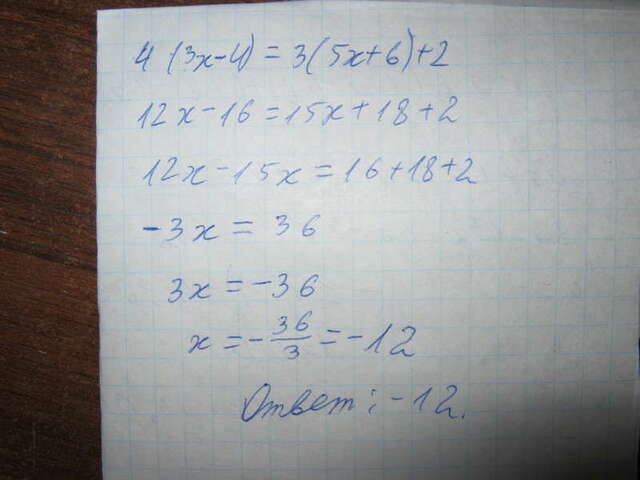 4 (3x-4) = 3(5x+6)+2
12x-16=15x+18+2
12x-15x=16+18+2
-3x = 36
3x = -36
x = -36/3 = -12
Ответ: -12.